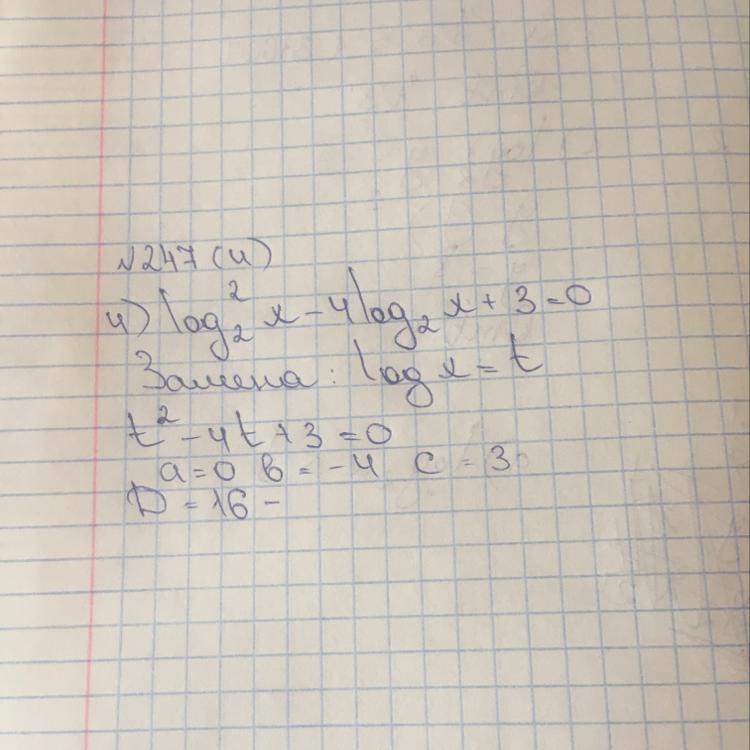 №247 (4)
4) log₂² x - 4log₂ x + 3 = 0
Замена: log x = t
t² - 4t + 3 = 0
a = 0 в = -4 c = 3
D = 16 -